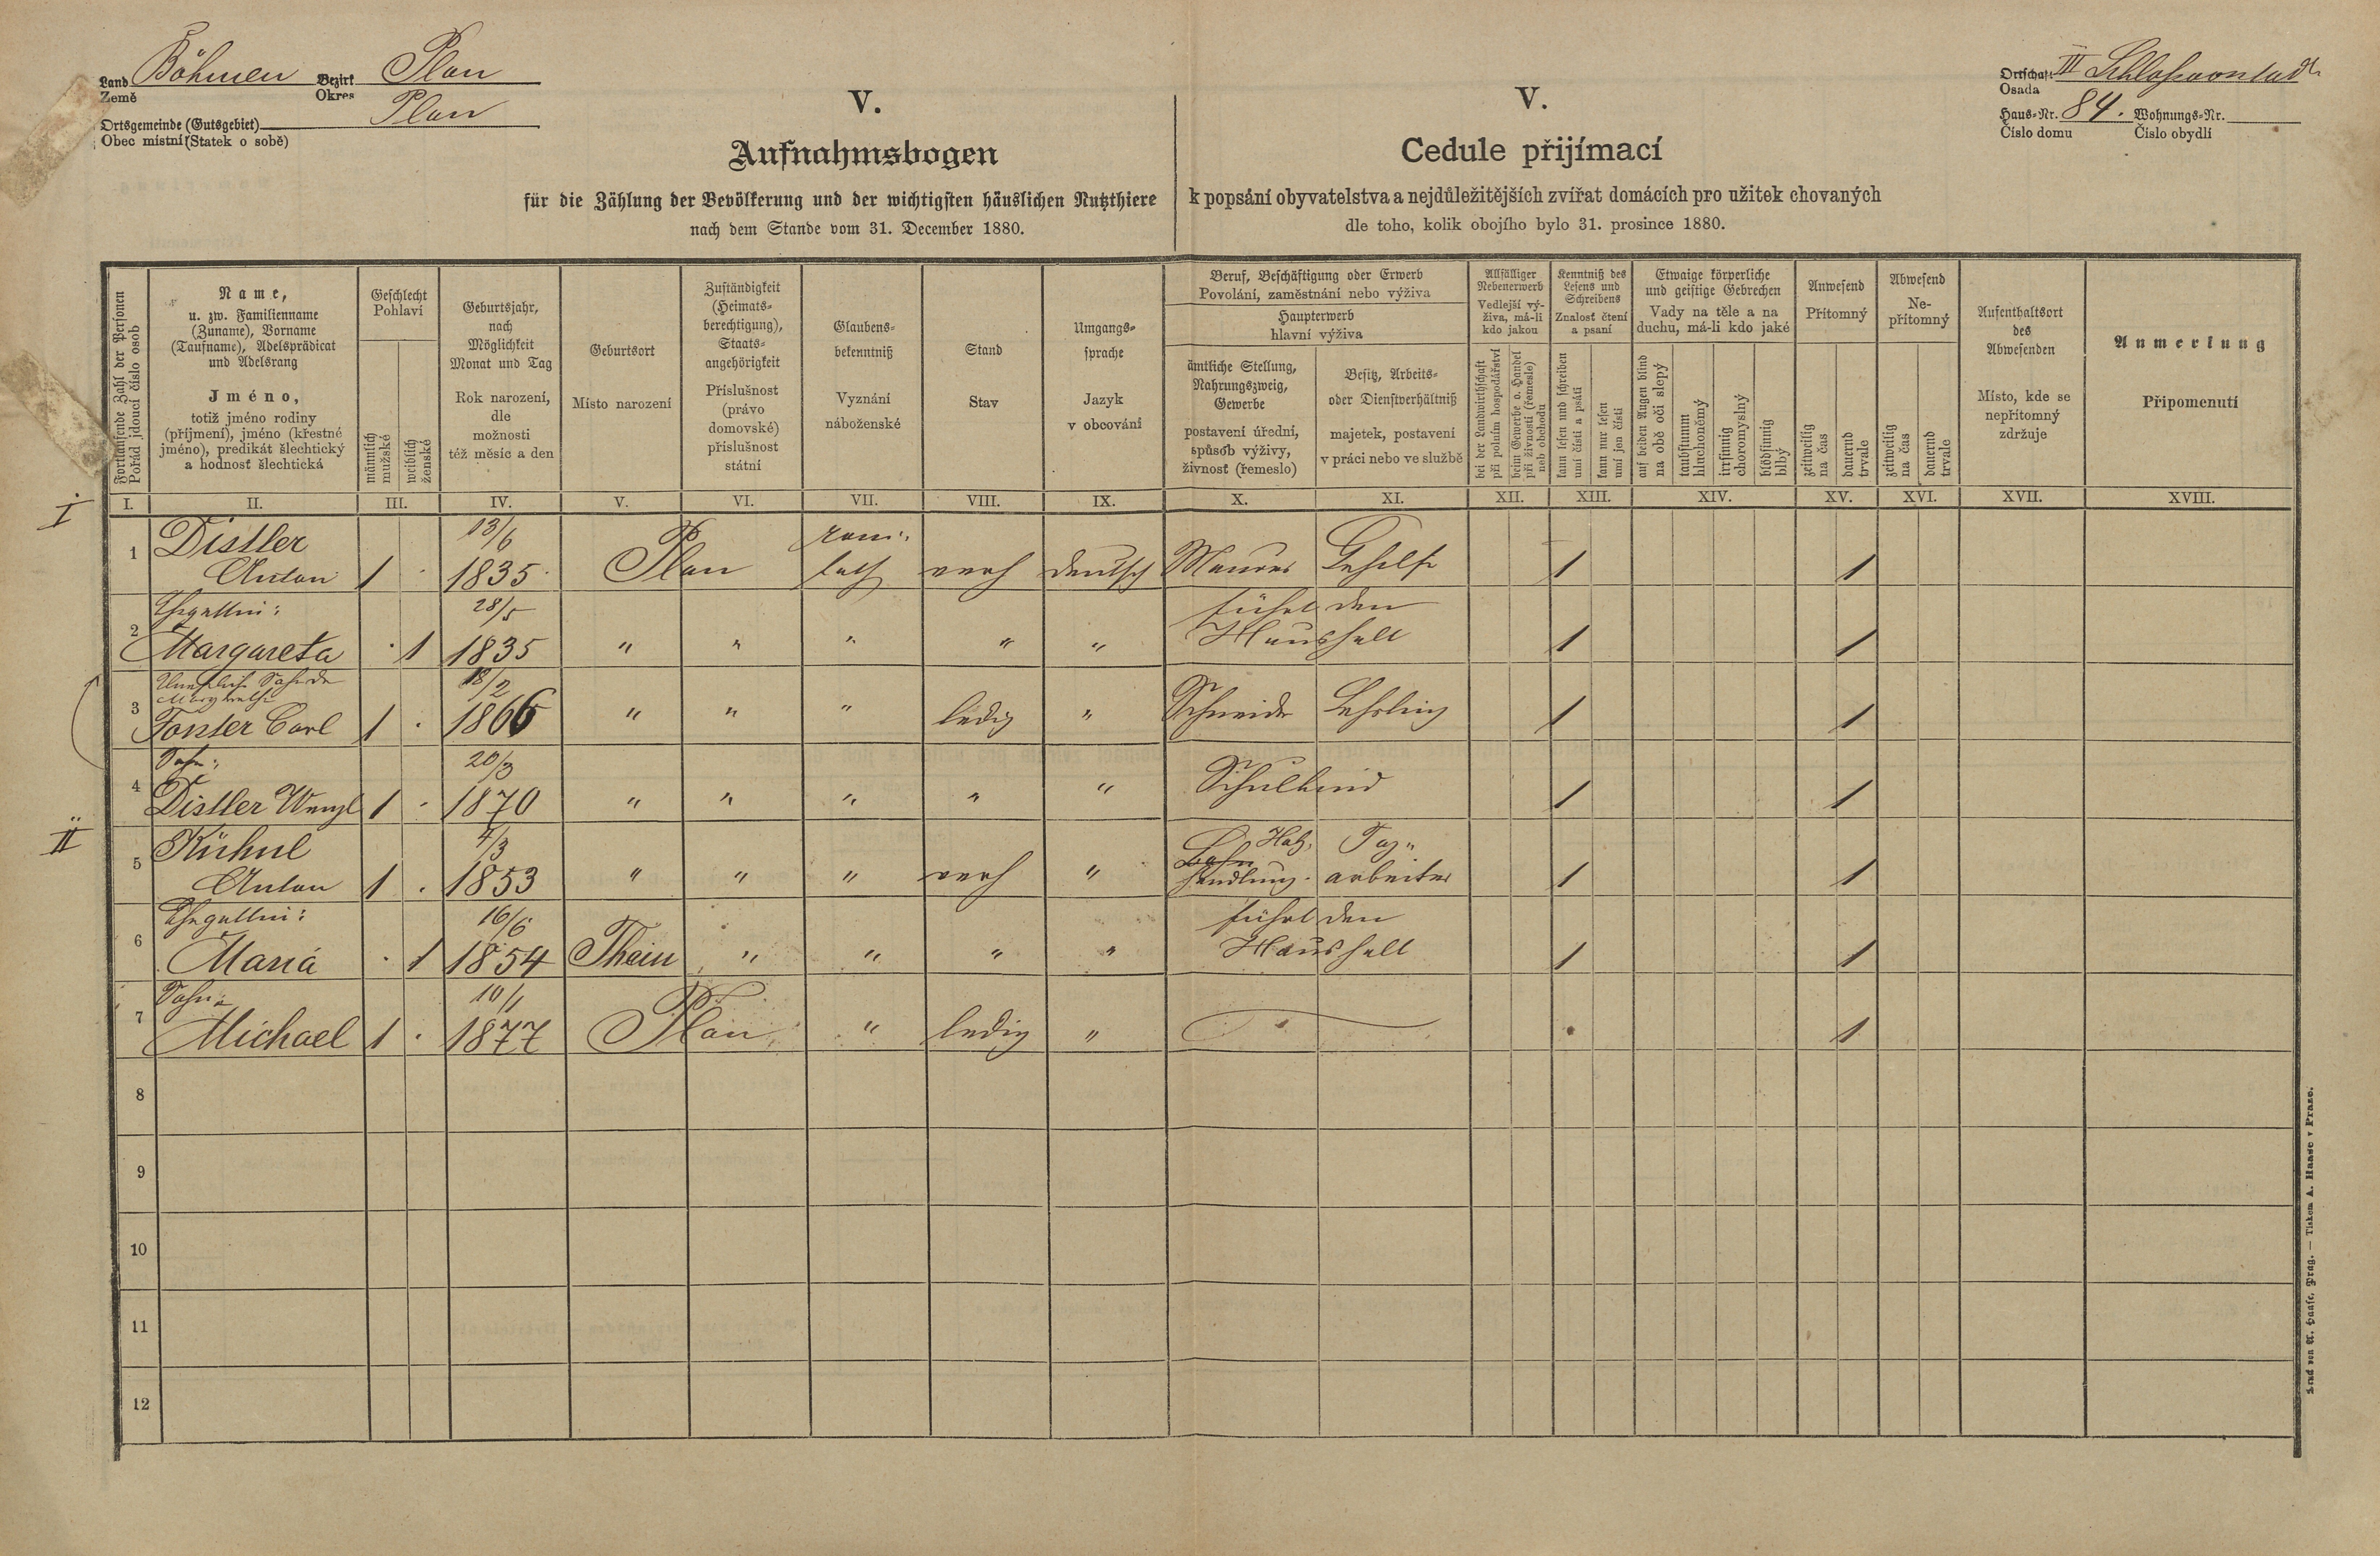 Land Böhmen Bezirk Plan
Země Okres
Ortsgemeinde (Gutsgebiet) Plan
Obec místní (Statek o sobě)
V.
Aufnahmsbogen
für die Zählung der Bevölkerung und der wichtigsten häuslichen Nutzthiere
nach dem Stande vom 31. December 1880.
V.
Cedule přijímací
k popsání obyvatelstva a nejdůležitějších zvířat domácích pro užitek chovaných
dle toho, kolik obojího bylo 31. prosince 1880.
Ortschaft III Schloßvorstadt
Osada
Haus-Nr. 84. Wohnungs-Nr.
Číslo domu Číslo obydlí
Fortlaufende Zahl der Personen
Pořád jdoucí číslo osob
Name,
u. zw. Familienname
(Zuname), Vorname
(Taufname), Adelsprädicat
und Adelsrang
Jméno,
totiž jméno rodiny
(příjmení), jméno (křestné
jméno), predikát šlechtický
a hodnost šlechtická
Geschlecht
Pohlaví
männlich
mužské
weiblich
ženské
Geburtsjahr,
nach
Möglichkeit
Monat und Tag
Rok narození,
dle
možnosti
též měsíc a den
Geburtsort
Místo narození
Zuständigkeit
(Heimats-
berechtigung),
Staats-
angehörigkeit
Příslušnost
(právo
domovské)
příslušnost
státní
Glaubens-
bekenntniß
Vyznání
náboženské
Stand
Stav
Umgangs-
sprache
Jazyk
v obcování
Beruf, Beschäftigung oder Erwerb
Povolání, zaměstnání nebo výživa
Haupterwerb
hlavní výživa
ämtliche Stellung,
Nahrungszweig,
Gewerbe
postavení úřední,
spůsob výživy,
živnosť (řemeslo)
Besitz, Arbeits-
oder Dienstverhältniß
majetek, postavení
v práci nebo ve službě
Allfälliger
Nebenerwerb
Vedlejší vý-
živa, má-li
kdo jakou
bei der Landwirthschaft
při polním hospodářství
beim Gewerbe o. Handel
při živnosti (řemesle)
neb obchodu
Kenntniß des
Lesens und
Schreibens
Znalosť čtení
a psaní
kann lesen und schreiben
umí čísti a psáti
kann nur lesen
umí jen čísti
Etwaige körperliche
und geistige Gebrechen
Vady na těle a na
duchu, má-li kdo jaké
auf beiden Augen blind
na obě oči slepý
taubstumm
hluchoněmý
irrsinnig
choromyslný
blödsinnig
blbý
Anwesend
Přítomný
zeitweilig
na čas
dauernd
trvale
Abwesend
Ne-
přítomný
zeitweilig
na čas
dauernd
trvale
Aufenthaltsort
des
Abwesenden
Místo, kde se
nepřítomný
zdržuje
Anmerkung
Připomenutí
I. II. III. IV. V. VI. VII. VIII. IX. X. XI. XII. XIII. XIV. XV. XVI. XVII. XVIII.
I
1 Distler 13/6 röm:
Anton 1 · 1835 Plan kath verh deutsch Maurer Gehilfe 1 1
2 Ehegattin: 28/5 führt den
Margareta · 1 1835 " " " " " Haushalt 1 1
3 Unehelich Sohn der 18/2
Forster Carl 1 · 1866 " " " ledig " Schneider Lehrling 1 1
4 Sohn: 20/3
Distler Wenzl 1 · 1870 " " " " " Schulkind 1 1
II
5 Kühnl 4/3 Holz, Tag„
Anton 1 · 1853 " " " verh " handlung. arbeiter 1 1
6 Ehegattin: 16/6 führt den
Maria · 1 1854 Thein " " " " Haushalt 1 1
7 Sohn: 10/1
Michael 1 · 1877 Plan " ledig " 1
8
9
10
11
12
Druck von A. Haase, Prag. — Tiskem A. Haase v Praze.